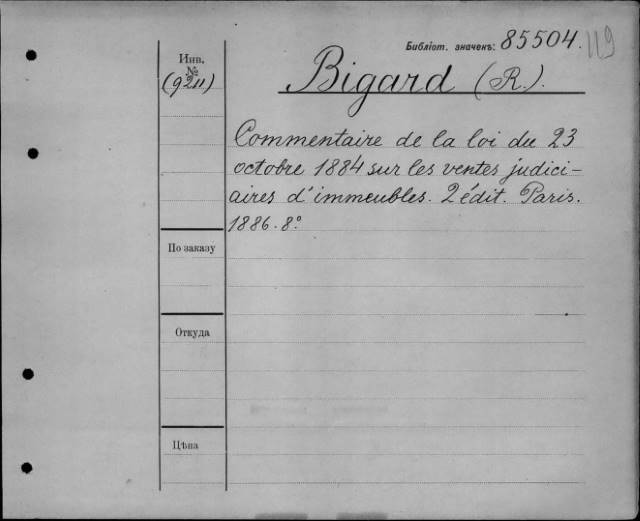 Библіот. значекъ: 85504. 119
Инв.
№
(9211)
Bigard (R.).
Commentaire de la loi du 23
octobre 1884 sur les ventes judici-
aires d'immeubles. 2 édit. Paris.
1886. 8°.
По заказу
Откуда
Цѣна